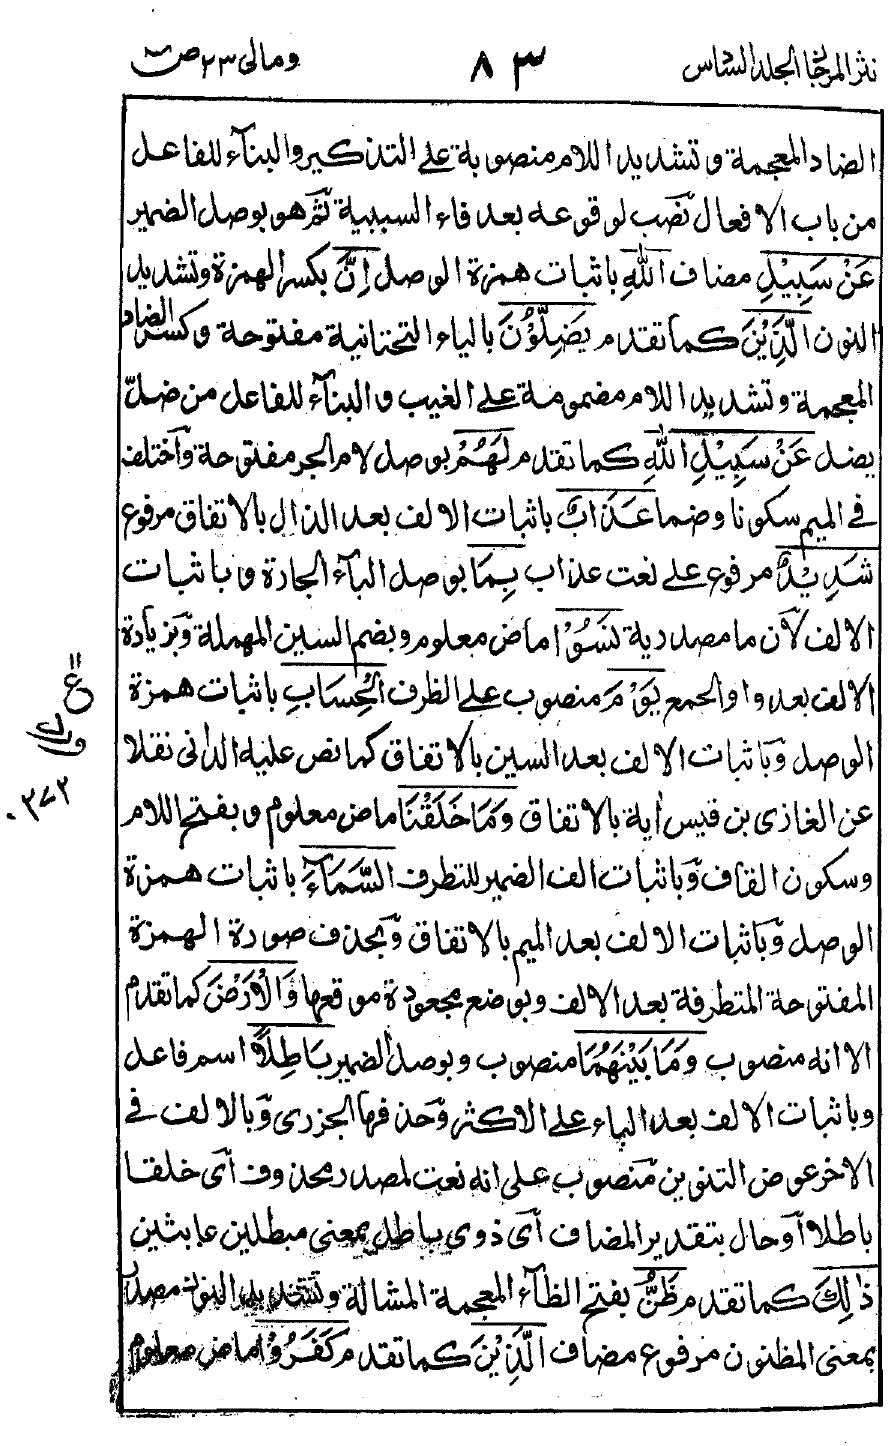 نثر المرجان الجلد السادس ٨٣ ومالی ٢٣ ص
الضاد المعجمة وتشديد اللام منصوبة علی التذكير والبنآء للفاعل
من باب الافعال نصب لوقوعه بعد فاء السببية ثم هو بوصل الضمير
عَنْ سَبِيْلِ مضاف اللّٰهِ باثبات همزة الوصل اِنَّ بكسر الهمزة وتشديد
النون الَّذِيْنَ كما تقدم يَضِلُّوْنَ بالياء التحتانية مفتوحة وكسر الضاد
المعجمة وتشديد اللام مضمومة علی الغيب والبنآء للفاعل من ضلّ
يضل عَنْ سَبِيْلِ اللّٰهِ كما تقدم لَهُمْ بوصل لام الجر مفتوحة وآختلف
فی الميم سكونا وضما عَذَابٌ باثبات الالف بعد الذال بالاتفاق مرفوع
شَدِيْدٌ مرفوع علی نعت عذاب بِمَا بوصل البآء الجارة وباثبات
الالف لآن ما مصدرية نَسُوْا ماض معلوم وبضم السين المهملة وَبزيادة
الالف بعد واو الجمع يَوْمَ منصوب علی الظرف الْحِسَابِ باثبات همزة
الوصل وَباثبات الالف بعد السين بالاتفاق كما نص عليه الدانی نقلا
عن الغازی بن قيس اٰية بالاتفاق وَمَا خَلَقْنَا ماض معلوم وبفتح اللام
وسكون القاف وَباثبات الف الضمير للتطرف السَّمَآءَ باثبات همزة
الوصل وَباثبات الالف بعد الميم بالاتفاق وَبحذف صورة الهمزة
المفتوحة المتطرفة بعد الالف وبوضع مجعودة موقعها وَالْاَرْضَ كما تقدم
الا انه منصوب وَمَا بَيْنَهُمَا منصوب وبوصل الضمير بَاطِلًا اسم فاعل
وباثبات الالف بعد الباء علی الاكثر وَحذفها الجزری وَبالالف فی
الاخر عوض التنوين مَنصوب علی انه نعت لمصدر محذوف آی خلقا
باطلا آو حال بتقدير المضاف آی ذوی باطل بمعنی مبطلين عابثين
ذٰلِكَ كما تقدم ظَنُّ بفتح الظآء المعجمة المشالة وتشديد النون مصدر
بمعنی المظنون مرفوع مضاف الَّذِيْنَ كما تقدم كَفَرُوْا ماض معلوم
ع